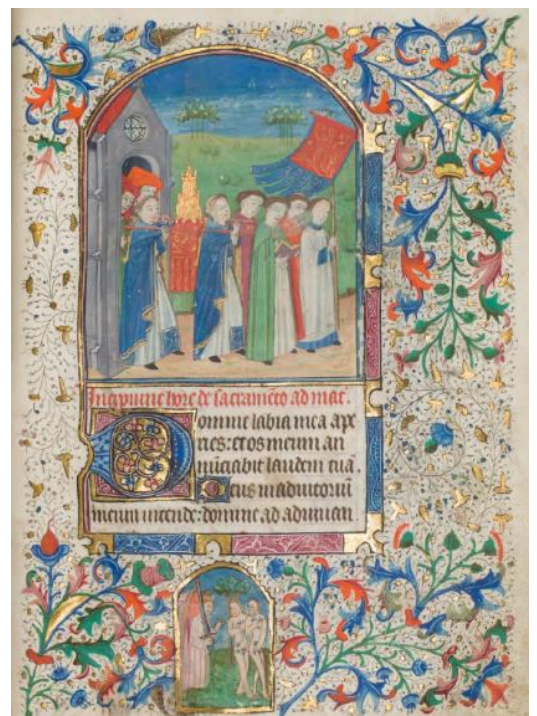 Incipiunt hore de sacrameto ad mat᷑.
Domine labia mea ape
ries: et os meum an
nuciabit laudem tuā.
Deus in adiutoriū
meum intende: domine ad adiuuan